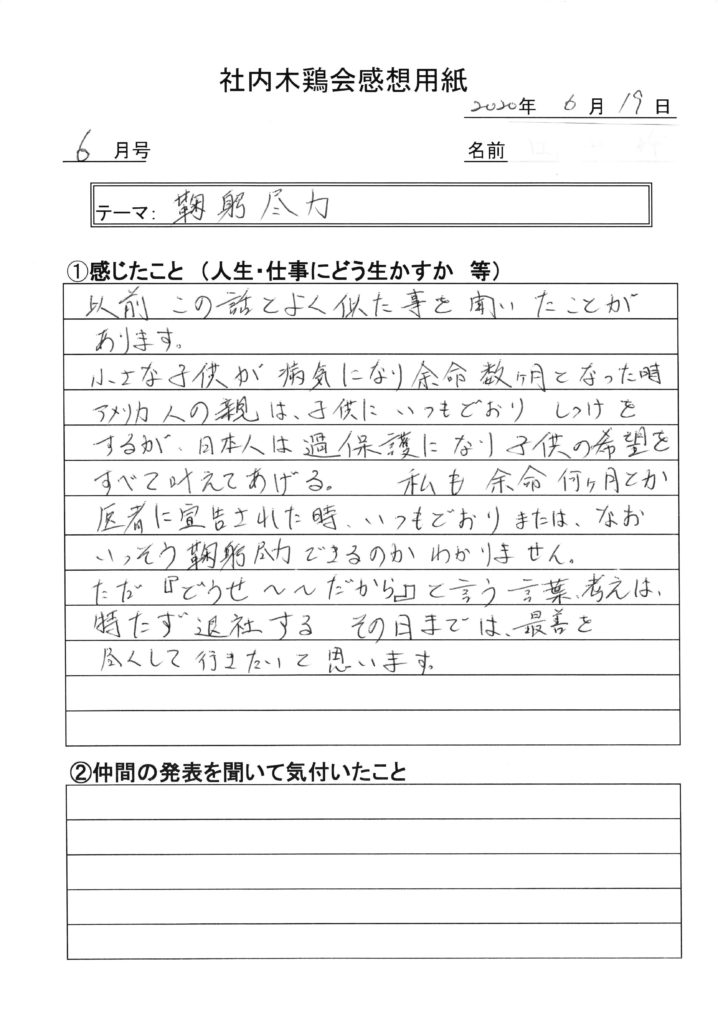 社内木鶏会感想用紙
2020年 6月 19日
6 月号
名前
テーマ： 鞠躬尽力
①感じたこと （人生・仕事にどう生かすか 等）
以前 この話とよく似た事を聞いたことが
あります。
小さな子供が 病気になり余命数ヶ月となった時
アメリカ人の親は、子供に いつもどおり しつけを
するが、日本人は過保護になり子供の希望を
すべて叶えてあげる。 私も 余命何ヶ月とか
医者に宣告された時、いつもどおりまたは、なお
いっそう鞠躬尽力できるのかわかりません。
ただ『どうせ～～だから』と言う言葉、考えは、
持たず退社する その日までは、最善を
尽くして行きたいと思います。
②仲間の発表を聞いて気付いたこと